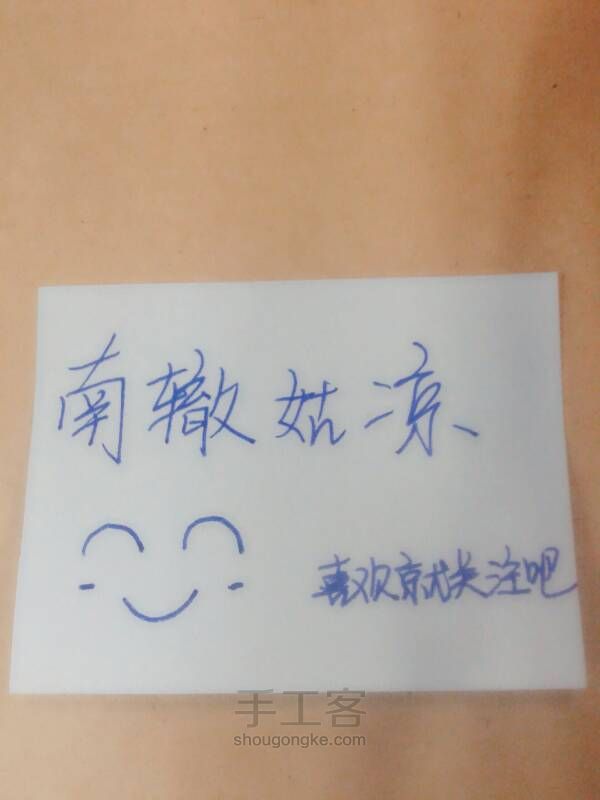 南辙姑凉
喜欢就关注吧
手工客
shougongke.com